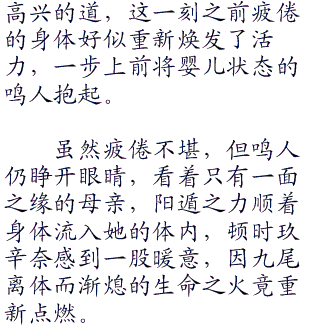 高兴的道，这一刻之前疲倦
的身体好似重新焕发了活
力，一步上前将婴儿状态的
鸣人抱起。
虽然疲倦不堪，但鸣人
仍睁开眼睛，看着只有一面
之缘的母亲，阳遁之力顺着
身体流入她的体内，顿时玖
辛奈感到一股暖意，因九尾
离体而渐熄的生命之火竟重
新点燃。